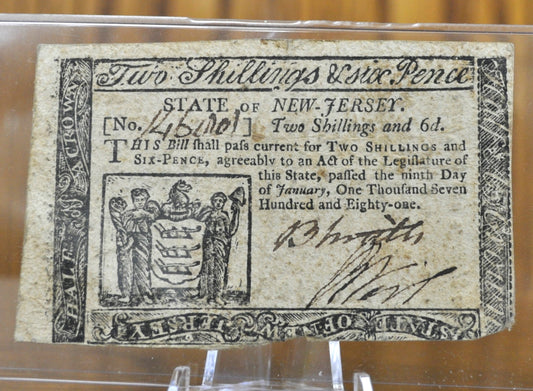 Two Shillings & six Pence
STATE OF NEW-JERSEY.
[No. ] Two Shillings and 6d.
THIS Bill shall pass current for TWO SHILLINGS and
SIX-PENCE, agreeably to an Act of the Legislature of
this State, passed the ninth Day
of January, One Thousand Seven
Hundred and Eighty-one.
B Smith
HALF A CROWN
STATE OF NEW JERSEY